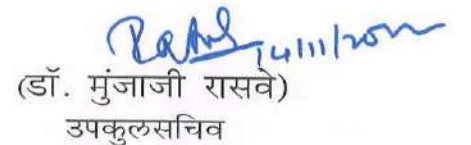 14/11/2022
(डॉ. मुंजाजी रासवे)
उपकुलसचिव